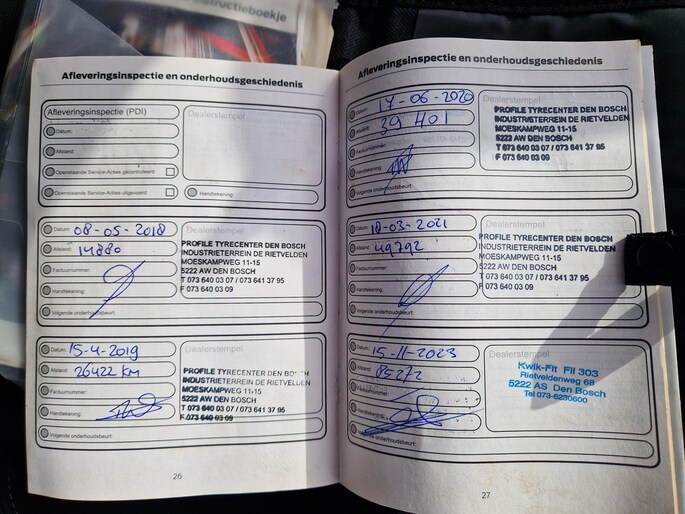 structieboekje
Afleveringsinspectie en onderhoudsgeschiedenis
Afleveringsinspectie (PDI)
Datum:
Afstand:
Openstaande Service-Acties gecontroleerd
Openstaande Service-Acties uitgevoerd
Dealerstempel
Handtekening:
Datum: 08-05-2018
Afstand: 14880
Factuurnummer:
Handtekening:
Volgende onderhoudsbeurt:
Dealerstempel
PROFILE TYRECENTER DEN BOSCH
INDUSTRIETERREIN DE RIETVELDEN
MOESKAMPWEG 11-15
5222 AW DEN BOSCH
T 073 640 03 07 / 073 641 37 95
F 073 640 03 09
Datum: 15-4-2019
Afstand: 26422 KM
Factuurnummer:
Handtekening:
Volgende onderhoudsbeurt:
Dealerstempel
PROFILE TYRECENTER DEN BOSCH
INDUSTRIETERREIN DE RIETVELDEN
MOESKAMPWEG 11-15
5222 AW DEN BOSCH
T 073 640 03 07 / 073 641 37 95
F 073 640 03 09
26
Afleveringsinspectie en onderhoudsgeschiedenis
Datum: 17-06-2020
Afstand: 39 401
Factuurnummer:
Handtekening:
Volgende onderhoudsbeurt:
Dealerstempel
PROFILE TYRECENTER DEN BOSCH
INDUSTRIETERREIN DE RIETVELDEN
MOESKAMPWEG 11-15
5222 AW DEN BOSCH
T 073 640 03 07 / 073 641 37 95
F 073 640 03 09
Datum: 18-03-2021
Afstand: 49792
Factuurnummer:
Handtekening:
Volgende onderhoudsbeurt:
Dealerstempel
PROFILE TYRECENTER DEN BOSCH
INDUSTRIETERREIN DE RIETVELDEN
MOESKAMPWEG 11-15
5222 AW DEN BOSCH
T 073 640 03 07 / 073 641 37 95
F 073 640 03 09
Datum: 15-11-2023
Afstand: 85272
Factuurnummer:
Handtekening:
Volgende onderhoudsbeurt:
Dealerstempel
Kwik-Fit Fil 303
Rietveldenweg 68
5222 AS Den Bosch
Tel 073-6230600
27